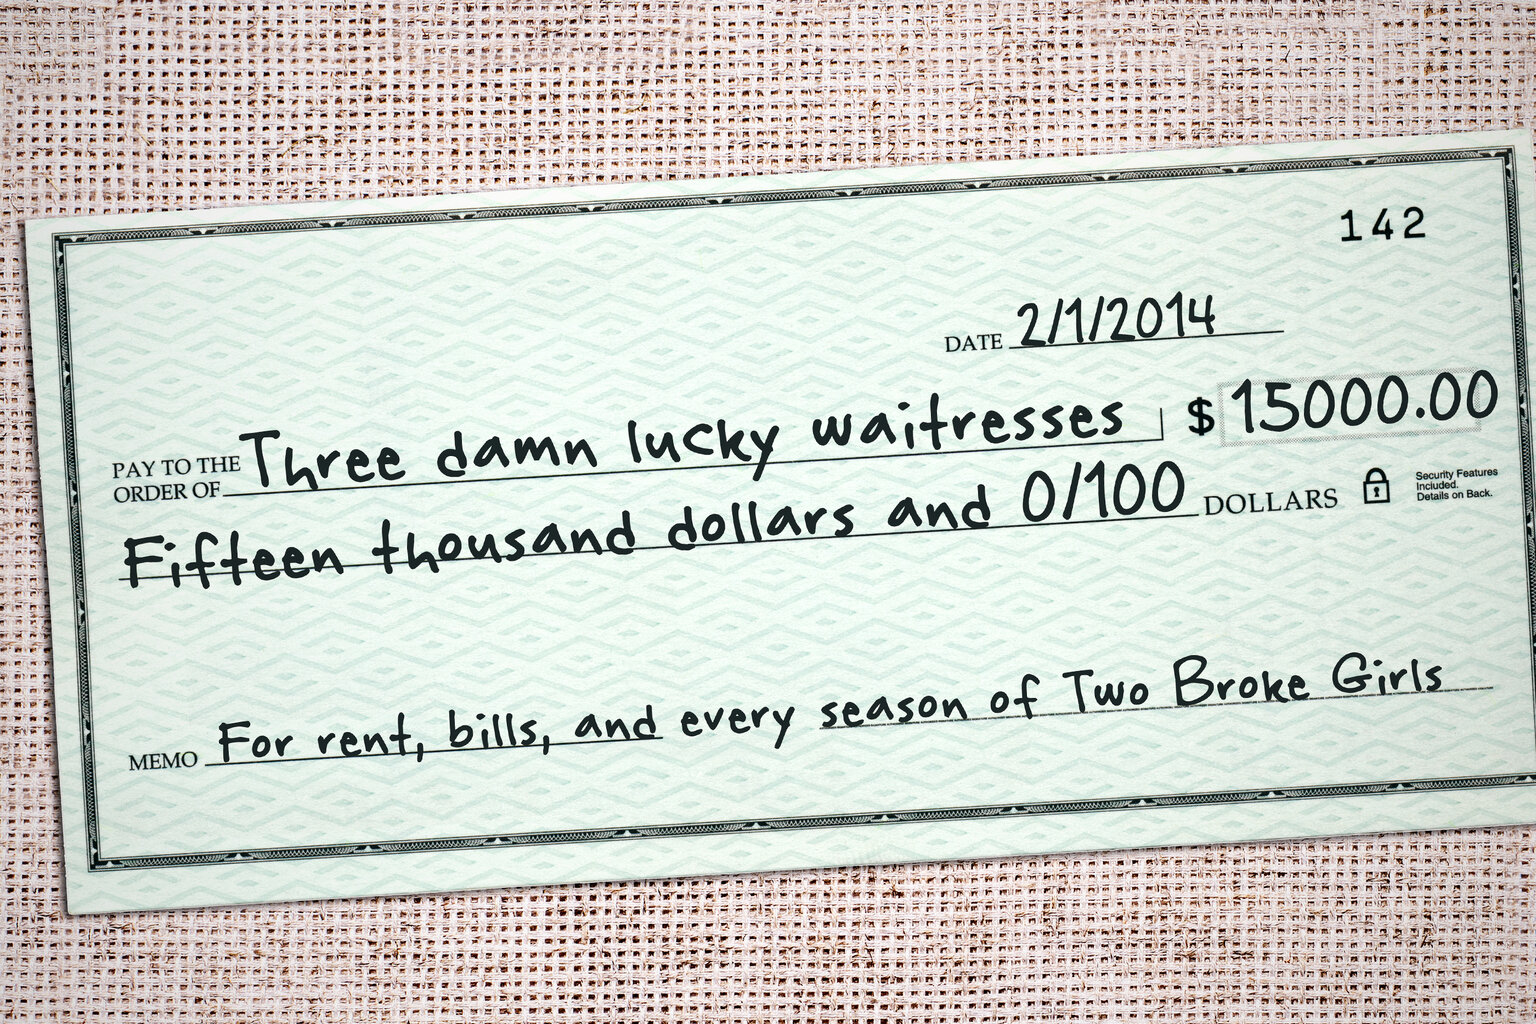 142
DATE 2/1/2014
PAY TO THE
ORDER OF Three damn lucky waitresses $ 15000.00
Fifteen thousand dollars and 0/100 DOLLARS
Security Features
Included.
Details on Back.
MEMO For rent, bills, and every season of Two Broke Girls